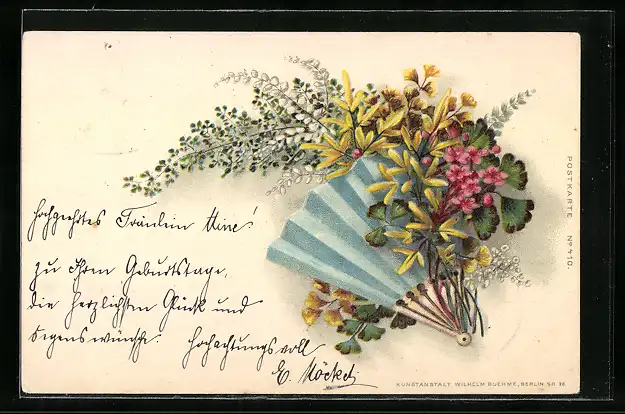 Hochgeehrtes Fräulein Mine!
zu Ihren Geburtstage,
die herzlichsten Glück und
Segenswünsche.
Hochachtungsvoll
E. Möckel
POSTKARTE Nº 410.
KUNSTANSTALT WILHELM BOEHME, BERLIN S.O. 26